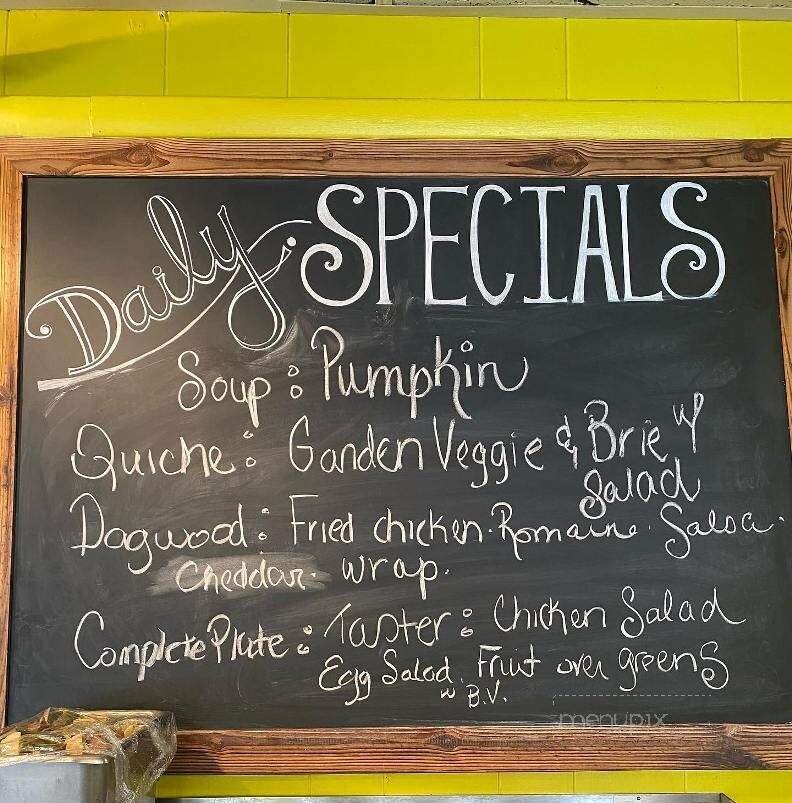 Daily SPECIALS
Soup: Pumpkin
Quiche: Garden Veggie & Brie w/
Salad
Dogwood: Fried chicken. Romaine. Salsa.
Cheddar. wrap.
Complete Plate: Taster: Chicken Salad
Egg Salad, Fruit over greens
w B.V.
menupix